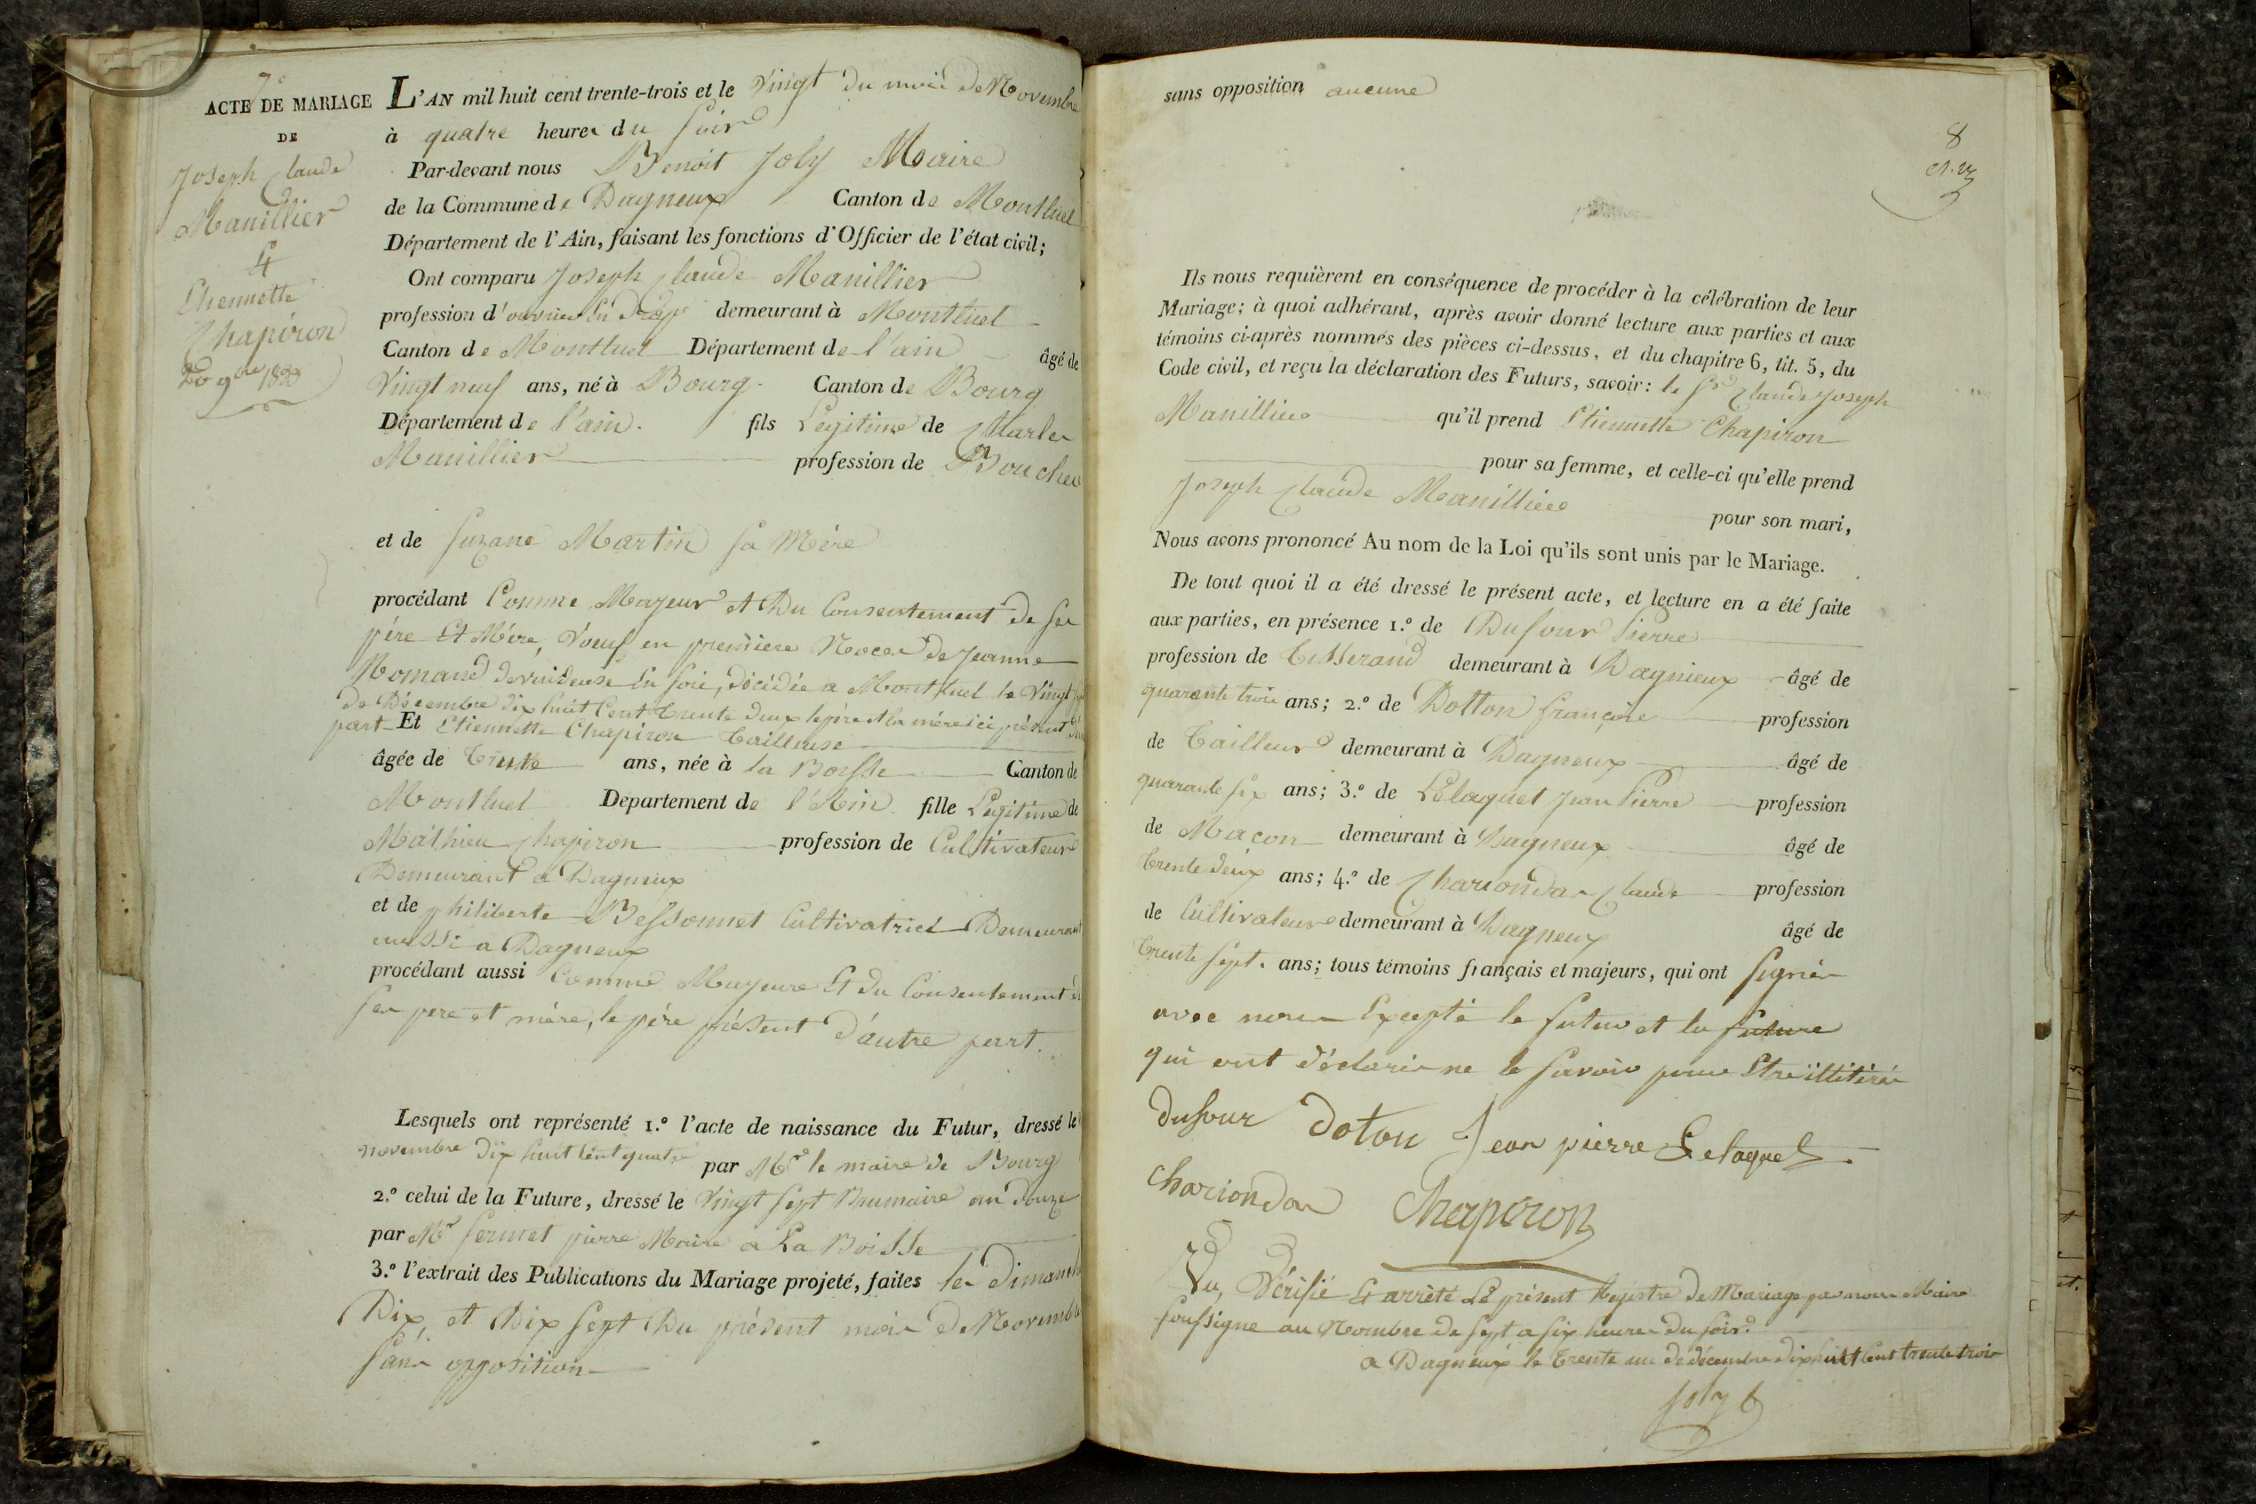 7e
ACTE DE MARIAGE
DE
Joseph Claude
Manillier
&
Etiennette
Chapiron
20 9bre 1833
L'AN mil huit cent trente-trois et le Vingt du mois de Novembre
à quatre heures du soir
Par-devant nous Benoit Joly Maire
de la Commune de Dagneux Canton de Montluel
Département de l'Ain, faisant les fonctions d'Officier de l'état civil;
Ont comparu Joseph Claude Manillier
profession d'ouvrier en Drap demeurant à Montluel
Canton de Montluel Département de l'ain âgé de
Vingt neuf ans, né à Bourg Canton de Bourg
Département de l'ain. fils Legitime de Charles
Manillier profession de Boucher
et de Suzane Martin sa Mère
procédant Comme Majeur et Du Consentement de ses
père Et Mère, Voeuf en première Noces de Jeanne
Romand devideuse en soie, décédée a Montluel le Vingt
de Décembre dix huit Cent trente deux le père et la mère ici présent
part Et Etiennette Chapiron Tailleuse
âgée de trente ans, née à la Boisse Canton de
Montluel Departement de l'Ain fille Legitime de
Mathieu Chapiron profession de Cultivateur
Demeurant a Dagneux
et de philiberte Bessonnet Cultivatrice Demeurant
aussi a Dagneux
procédant aussi Comme Majeure Et du Consentement de
ses pere et mère, le père présent d'autre part.
Lesquels ont représenté 1.º l'acte de naissance du Futur, dressé le
novembre dix huit Cent quatre par Mr le maire de Bourg
2.º celui de la Future, dressé le Vingt sept Brumaire an douze
par Mr fermet pierre Maire a La Boisse
3.º l'extrait des Publications du Mariage projeté, faites les Dimanche
Dix, et Dix Sept Du présent mois de Novembre
Sans opposition
sans opposition aucune
8
Ils nous requièrent en conséquence de procéder à la célébration de leur
Mariage; à quoi adhérant, après avoir donné lecture aux parties et aux
témoins ci-après nommés des pièces ci-dessus, et du chapitre 6, tit. 5, du
Code civil, et reçu la déclaration des Futurs, savoir: le Sr Claude Joseph
Manillier qu'il prend Etiennette Chapiron
pour sa femme, et celle-ci qu'elle prend
Joseph Claude Manillier
pour son mari,
Nous avons prononcé Au nom de la Loi qu'ils sont unis par le Mariage.
De tout quoi il a été dressé le présent acte, et lecture en a été faite
aux parties, en présence 1.º de Dufour Pierre
profession de Tisserand demeurant à Dagnieux âgé de
quarante trois ans; 2.º de Dotton françois profession
de Tailleur demeurant à Dagneux âgé de
quarante six ans; 3.º de Lelaquet Jean Pierre profession
de Macon demeurant à Dagneux âgé de
trente deux ans; 4.º de Chariondas Claude profession
de Cultivateur demeurant à Dagneux âgé de
trente sept. ans; tous témoins français et majeurs, qui ont signés
avec nous Excepté le futur et la future
qui ont déclarés ne le Savoir pour Etre illitérés
dufour doton Jean pierre Lelaquet
chariondas Chapiron
Vu, Vérifié Et arrêté Le présent Registre de Mariage par nous Maire
soussigne au Nombre de sept a six heures du soir
a Dagneux le trente un de décembre dix huit Cent trente trois
Joly b